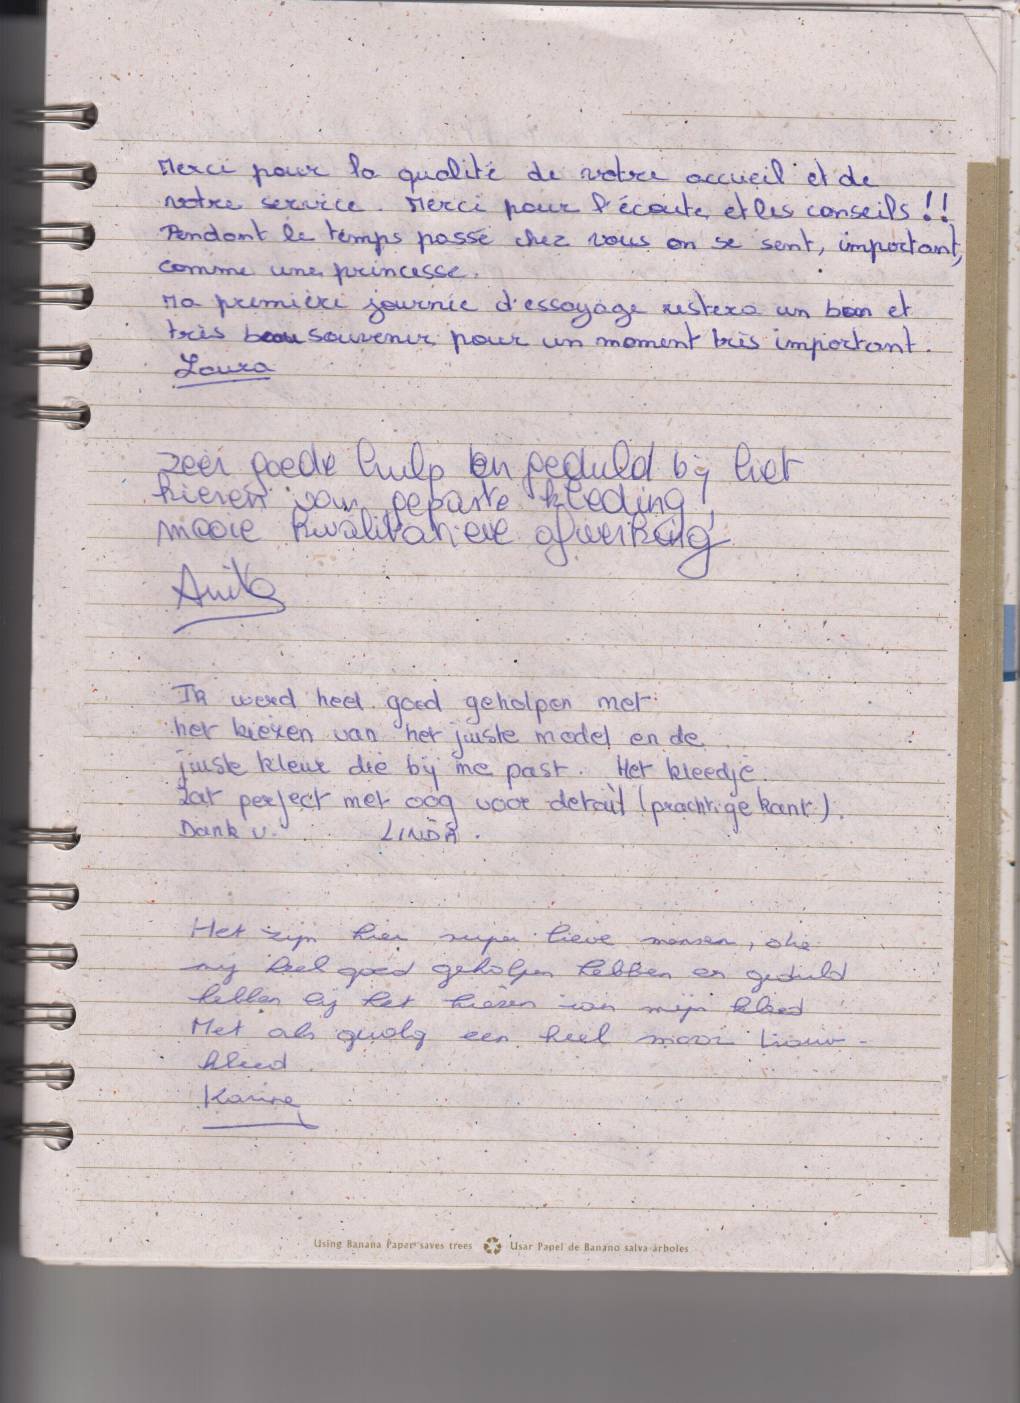 Merci pour la qualité de votre accueil et de
votre service. Merci pour l'écoute et les conseils !!
Pendant le temps passé chez vous on se sent, important,
comme une princesse.
Ma première journée d'essayage restera un bon et
très beau souvenir pour un moment très important.
Laura
zeer goede hulp en geduld bij het
kiezen van gepaste kleding!
mooie kwalitatieve afwerking
Anita
Ik werd heel goed geholpen met
het kiezen van het juiste model en de
juiste kleur die bij me past. Het kleedje
zat perfect met oog voor detail (prachtige kant).
Dank u. LINDA.
Het zijn hier super lieve mensen, die
mij heel goed geholpen hebben en geduld
hebben bij het kiezen van mijn kleed
Met als gvolg een heel mooi trouw-
kleed
Karine
Using Banana Paper saves trees Usar Papel de Banano salva árboles